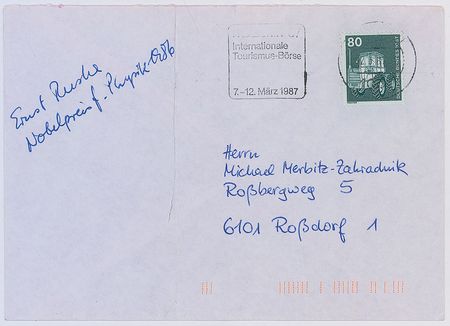 Internationale
Tourismus-Börse
7.–12. März 1987
80
Ernst Ruska
Nobelpreis f. Physik 1986
Herrn
Michael Merbitz-Zahradnik
Roßbergweg 5
6101 Roßdorf 1